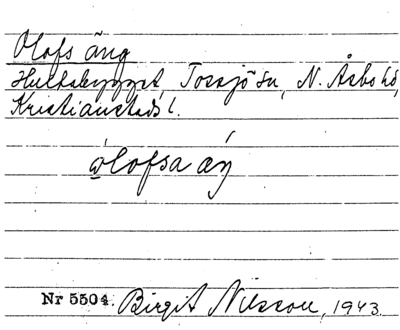 Olofs äng
Hultabygget, Tossjö sn, N. Åsbo hd,
Kristianstads l.
ólofsa äŋ
Nr 5504. Birgit Nilsson, 1943.